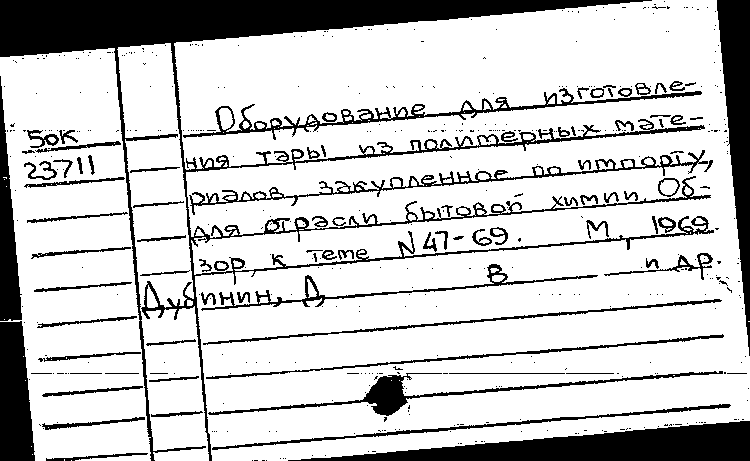 Оборудование для изготовле-
50к
ния тары из полимерных мате-
23711
риалов, закупленное по импорту,
для отрасли бытовой химии. Об-
зор к теме N 47-69. М., 1969.
Дубинин, Д В и др.